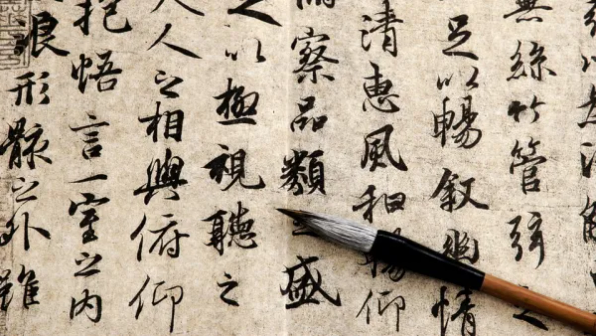 無絲竹管弦之
足以暢敘幽情
清惠風和暢仰
察品類之盛
以極視聽之
夫人之相與俯仰
抱悟言一室之內
浪形骸之外雖